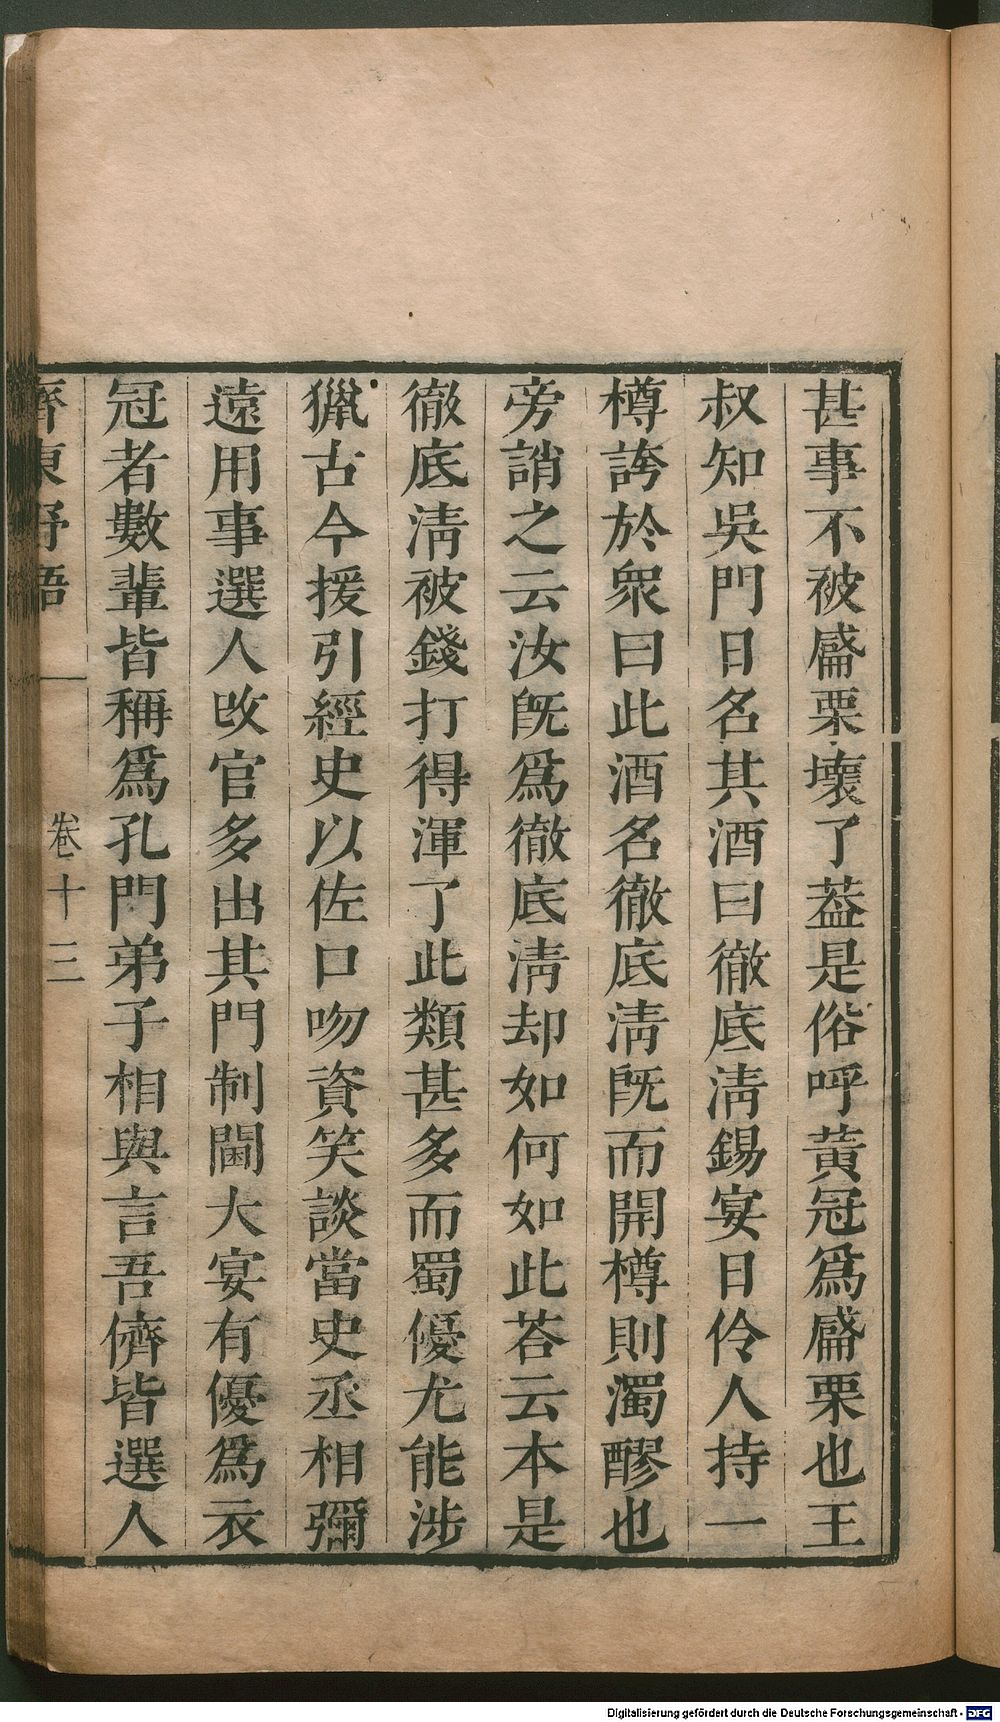 甚事不被齾栗壞了葢是俗呼黄冠爲齾栗也王
叔知吳門日名其酒曰徹底淸錫宴日伶人持一
樽誇於衆曰此酒名徹底淸旣而開樽則濁醪也
旁誚之云汝旣爲徹底淸却如何如此荅云本是
徹底淸被錢打得渾了此類甚多而蜀優尤能涉
獵古今援引經史以佐口吻資笑談當史丞相彌
遠用事選人改官多出其門制閫大宴有優爲衣
冠者數輩皆稱爲孔門弟子相與言吾儕皆選人
齊東野語 卷十三
Digitalisierung gefördert durch die Deutsche Forschungsgemeinschaft - DFG